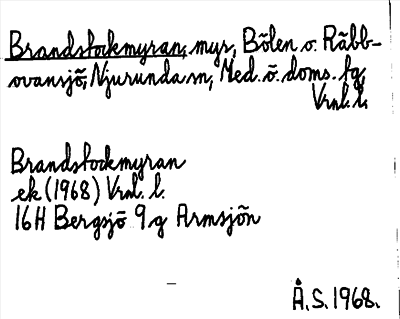 Brandstockmyran, myr, Bölen o. Räbb-
ovansjö, Njurunda sn, Med. ö. doms. tg,
Vrnl. l.
Brandstockmyran
ek (1968) Vrnl. l.
16H Bergsjö 9g Armsjön
Å.S. 1968.